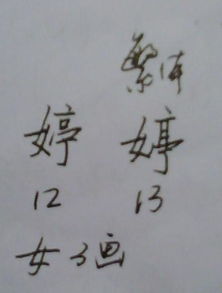 繁体
婷 婷
12 13
女3画